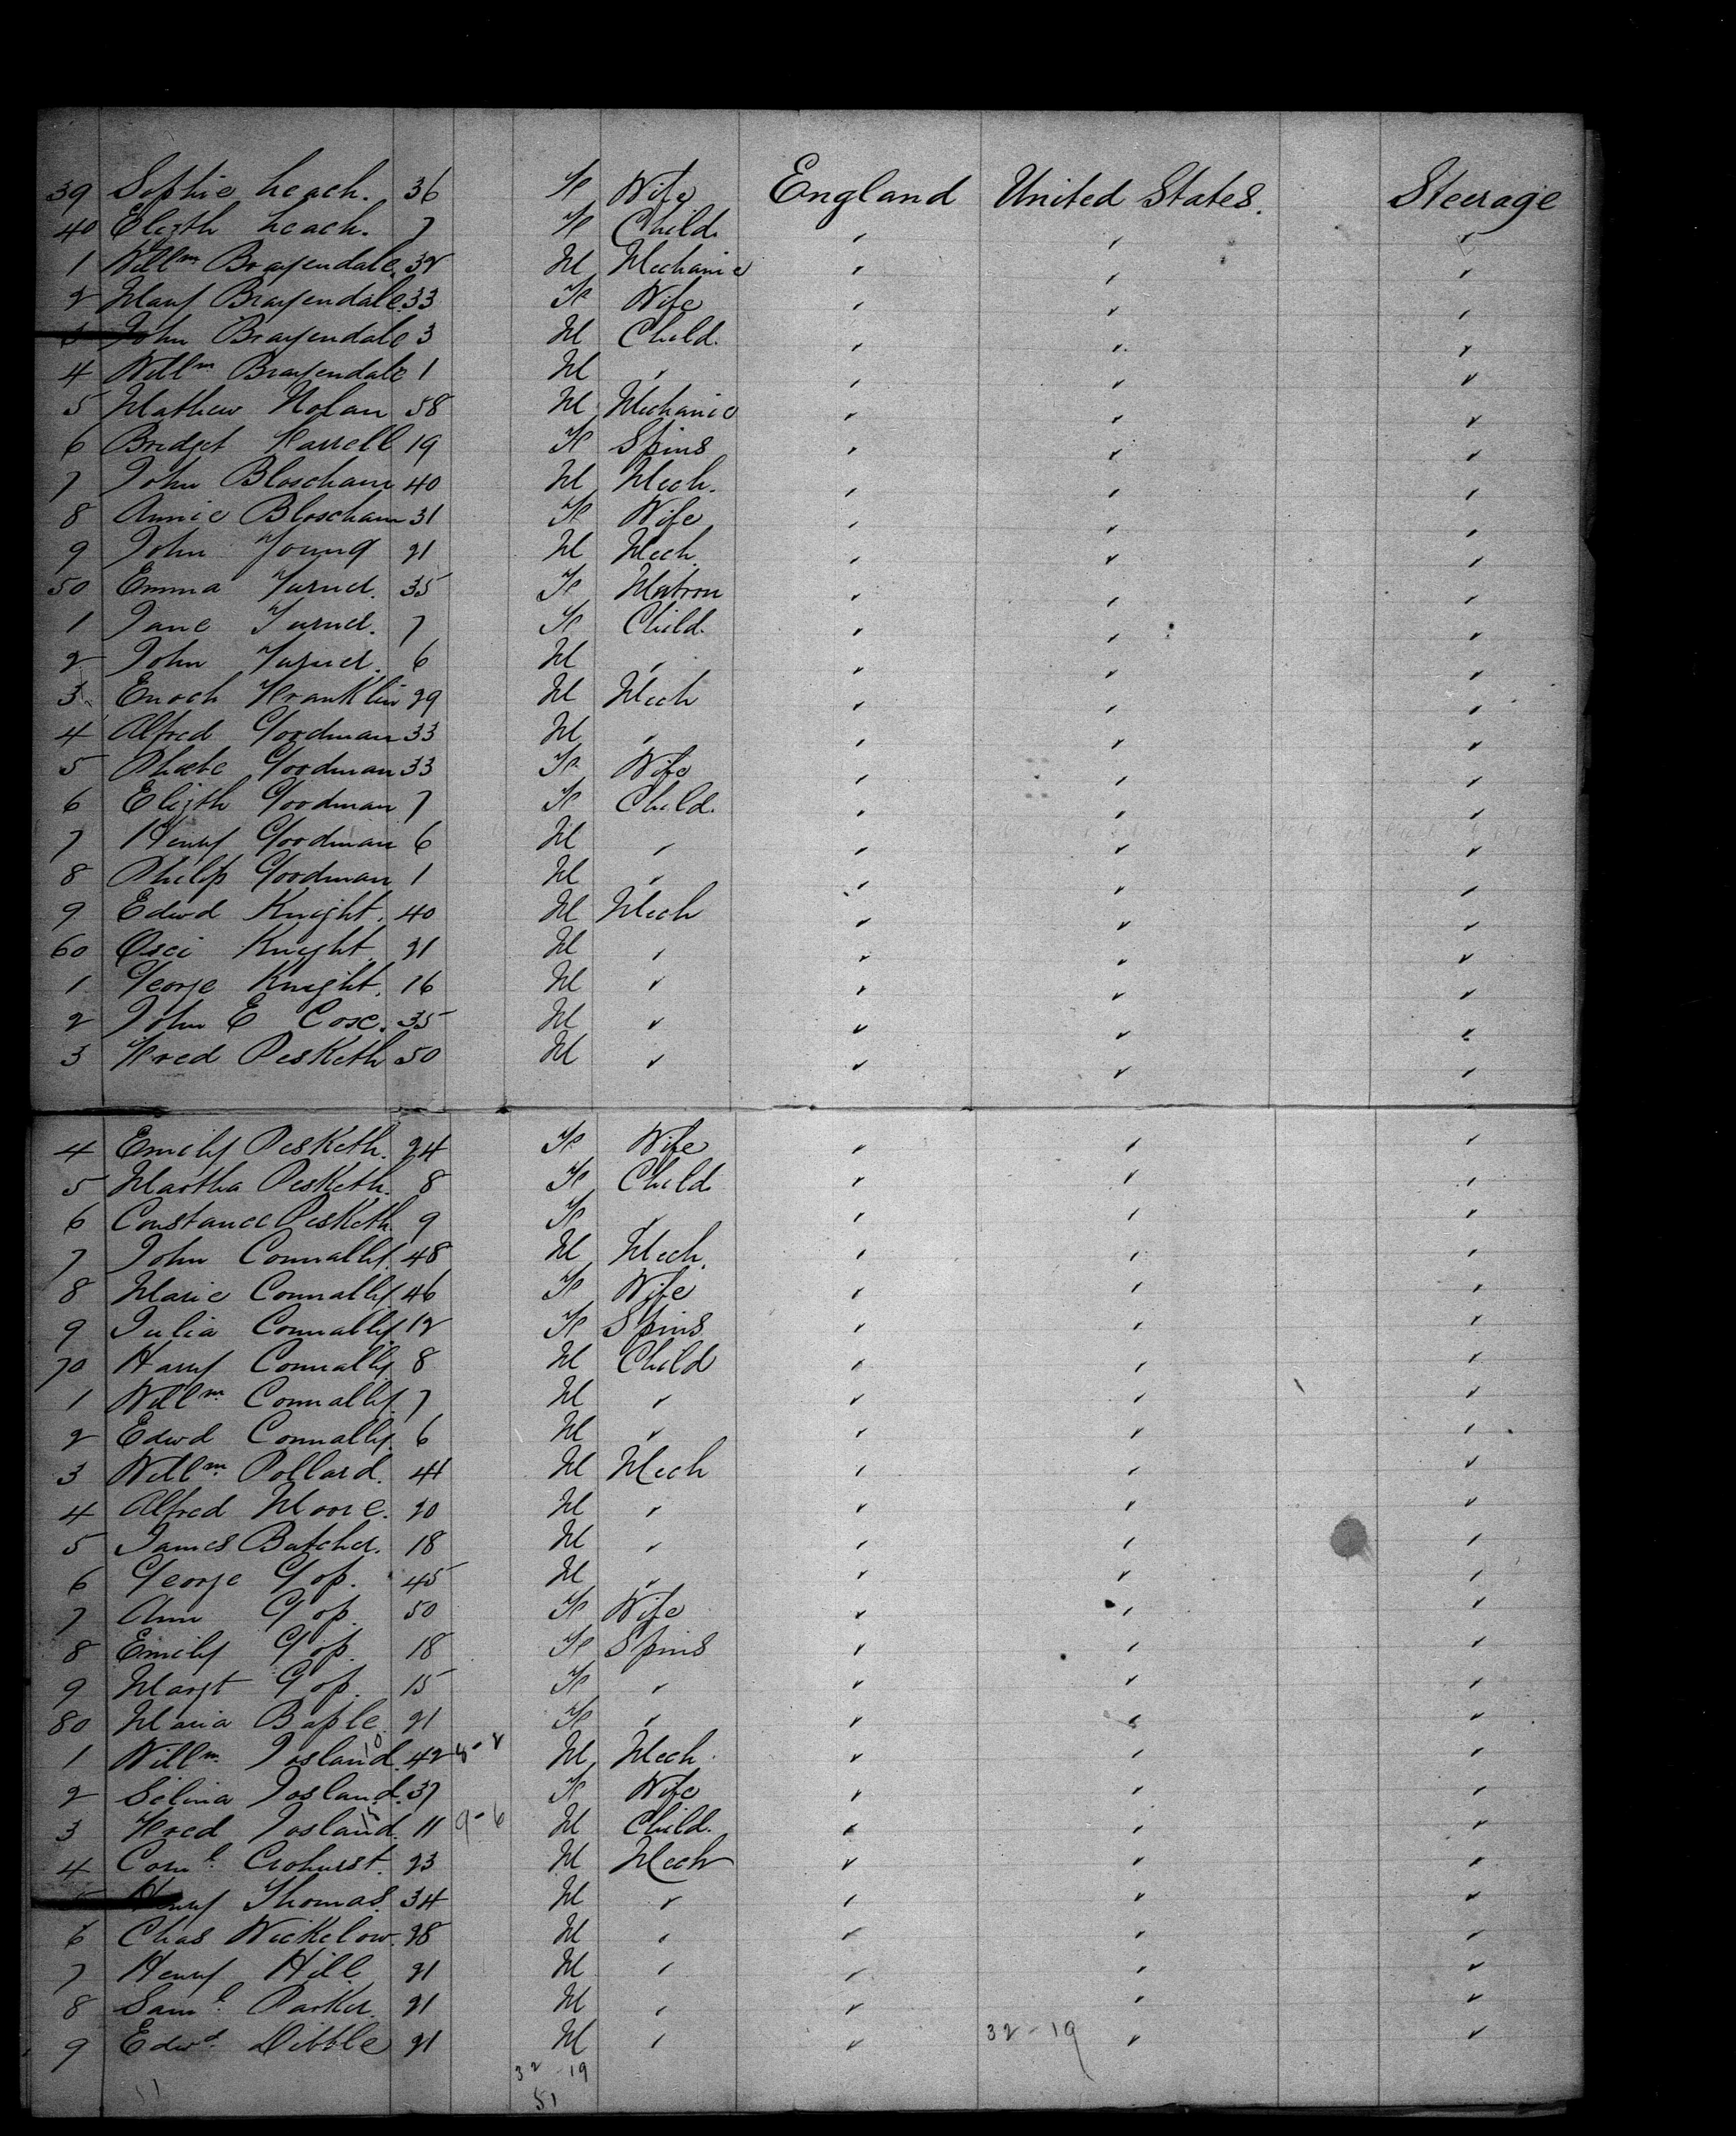 39 Sophie Leach. 36 F Wife England United States. Steerage
40 Elizth Leach. 7 F Child. " " "
1 Willm Brayendale. 32 M Mechanic " " "
2 Mary Brayendale. 33 F Wife " " "
3 John Brayendale 3 M Child. " " "
4 Willm Brayendale 1 M " " " "
5 Mathew Nolan 58 M Mechanic " " "
6 Bridget Farrell 19 F Spins " " "
7 John Bloscham 40 M Mech. " " "
8 Annie Bloscham 31 F Wife " " "
9 John Young 21 M Mech. " " "
50 Emma Turner. 35 F Matron " " "
1 Jane Turner. 7 F Child. " " "
2 John Turner. 6 M " " " "
3 Enoch Franklin 29 M Mech " " "
4 Alfred Goodman 33 M " " " "
5 Phœbe Goodman 33 F Wife " " "
6 Elizth Goodman 7 F Child. " " "
7 Henry Goodman 6 M " " " "
8 Philip Goodman 1 M " " " "
9 Edwd Knight. 40 M Mech " " "
60 Knight. 21 M " " " "
1 George Knight. 16 M " " " "
2 John E Cose. 35 M " " " "
3 Fred Pesketh 50 M " " " "
4 Emily Pesketh. 24 F Wife " " "
5 Martha Pesketh. 8 F Child " " "
6 Constance Pesketh. 9 F " " " "
7 John Connally. 48 M Mech. " " "
8 Marie Connally 46 F Wife " " "
9 Julia Connally 12 F Spins " " "
70 Harry Connally 8 M Child " " "
1 Willm Connally. 7 M " " " "
2 Edwd Connally. 6 M " " " "
3 Willm Pollard. 41 M Mech " " "
4 Alfred Moore. 20 M " " " "
5 James Butcher. 18 M " " " "
6 George Gop. 45 M " " " "
7 Ann Gop. 50 F Wife " " "
8 Emily Gop. 18 F Spins " " "
9 Margt Gop. 15 F " " " "
80 Maria Baple. 21 F " " " "
1 Willm Josland. 42 M Mech. " " "
2 Selina Josland. 37 F Wife " " "
3 Fred Josland. 11 9-6 M Child. " " "
4 Cornl. Crohurst. 23 M Mech " " "
5 Henry Thomas. 34 M " " " "
6 Chas Wickelow. 28 M " " " "
7 Henry Hill 21 M " " " "
8 Saml. Parker. 21 M " " " "
9 Edwd. Dibble 21 M " " 32-19 " "
32 19
51